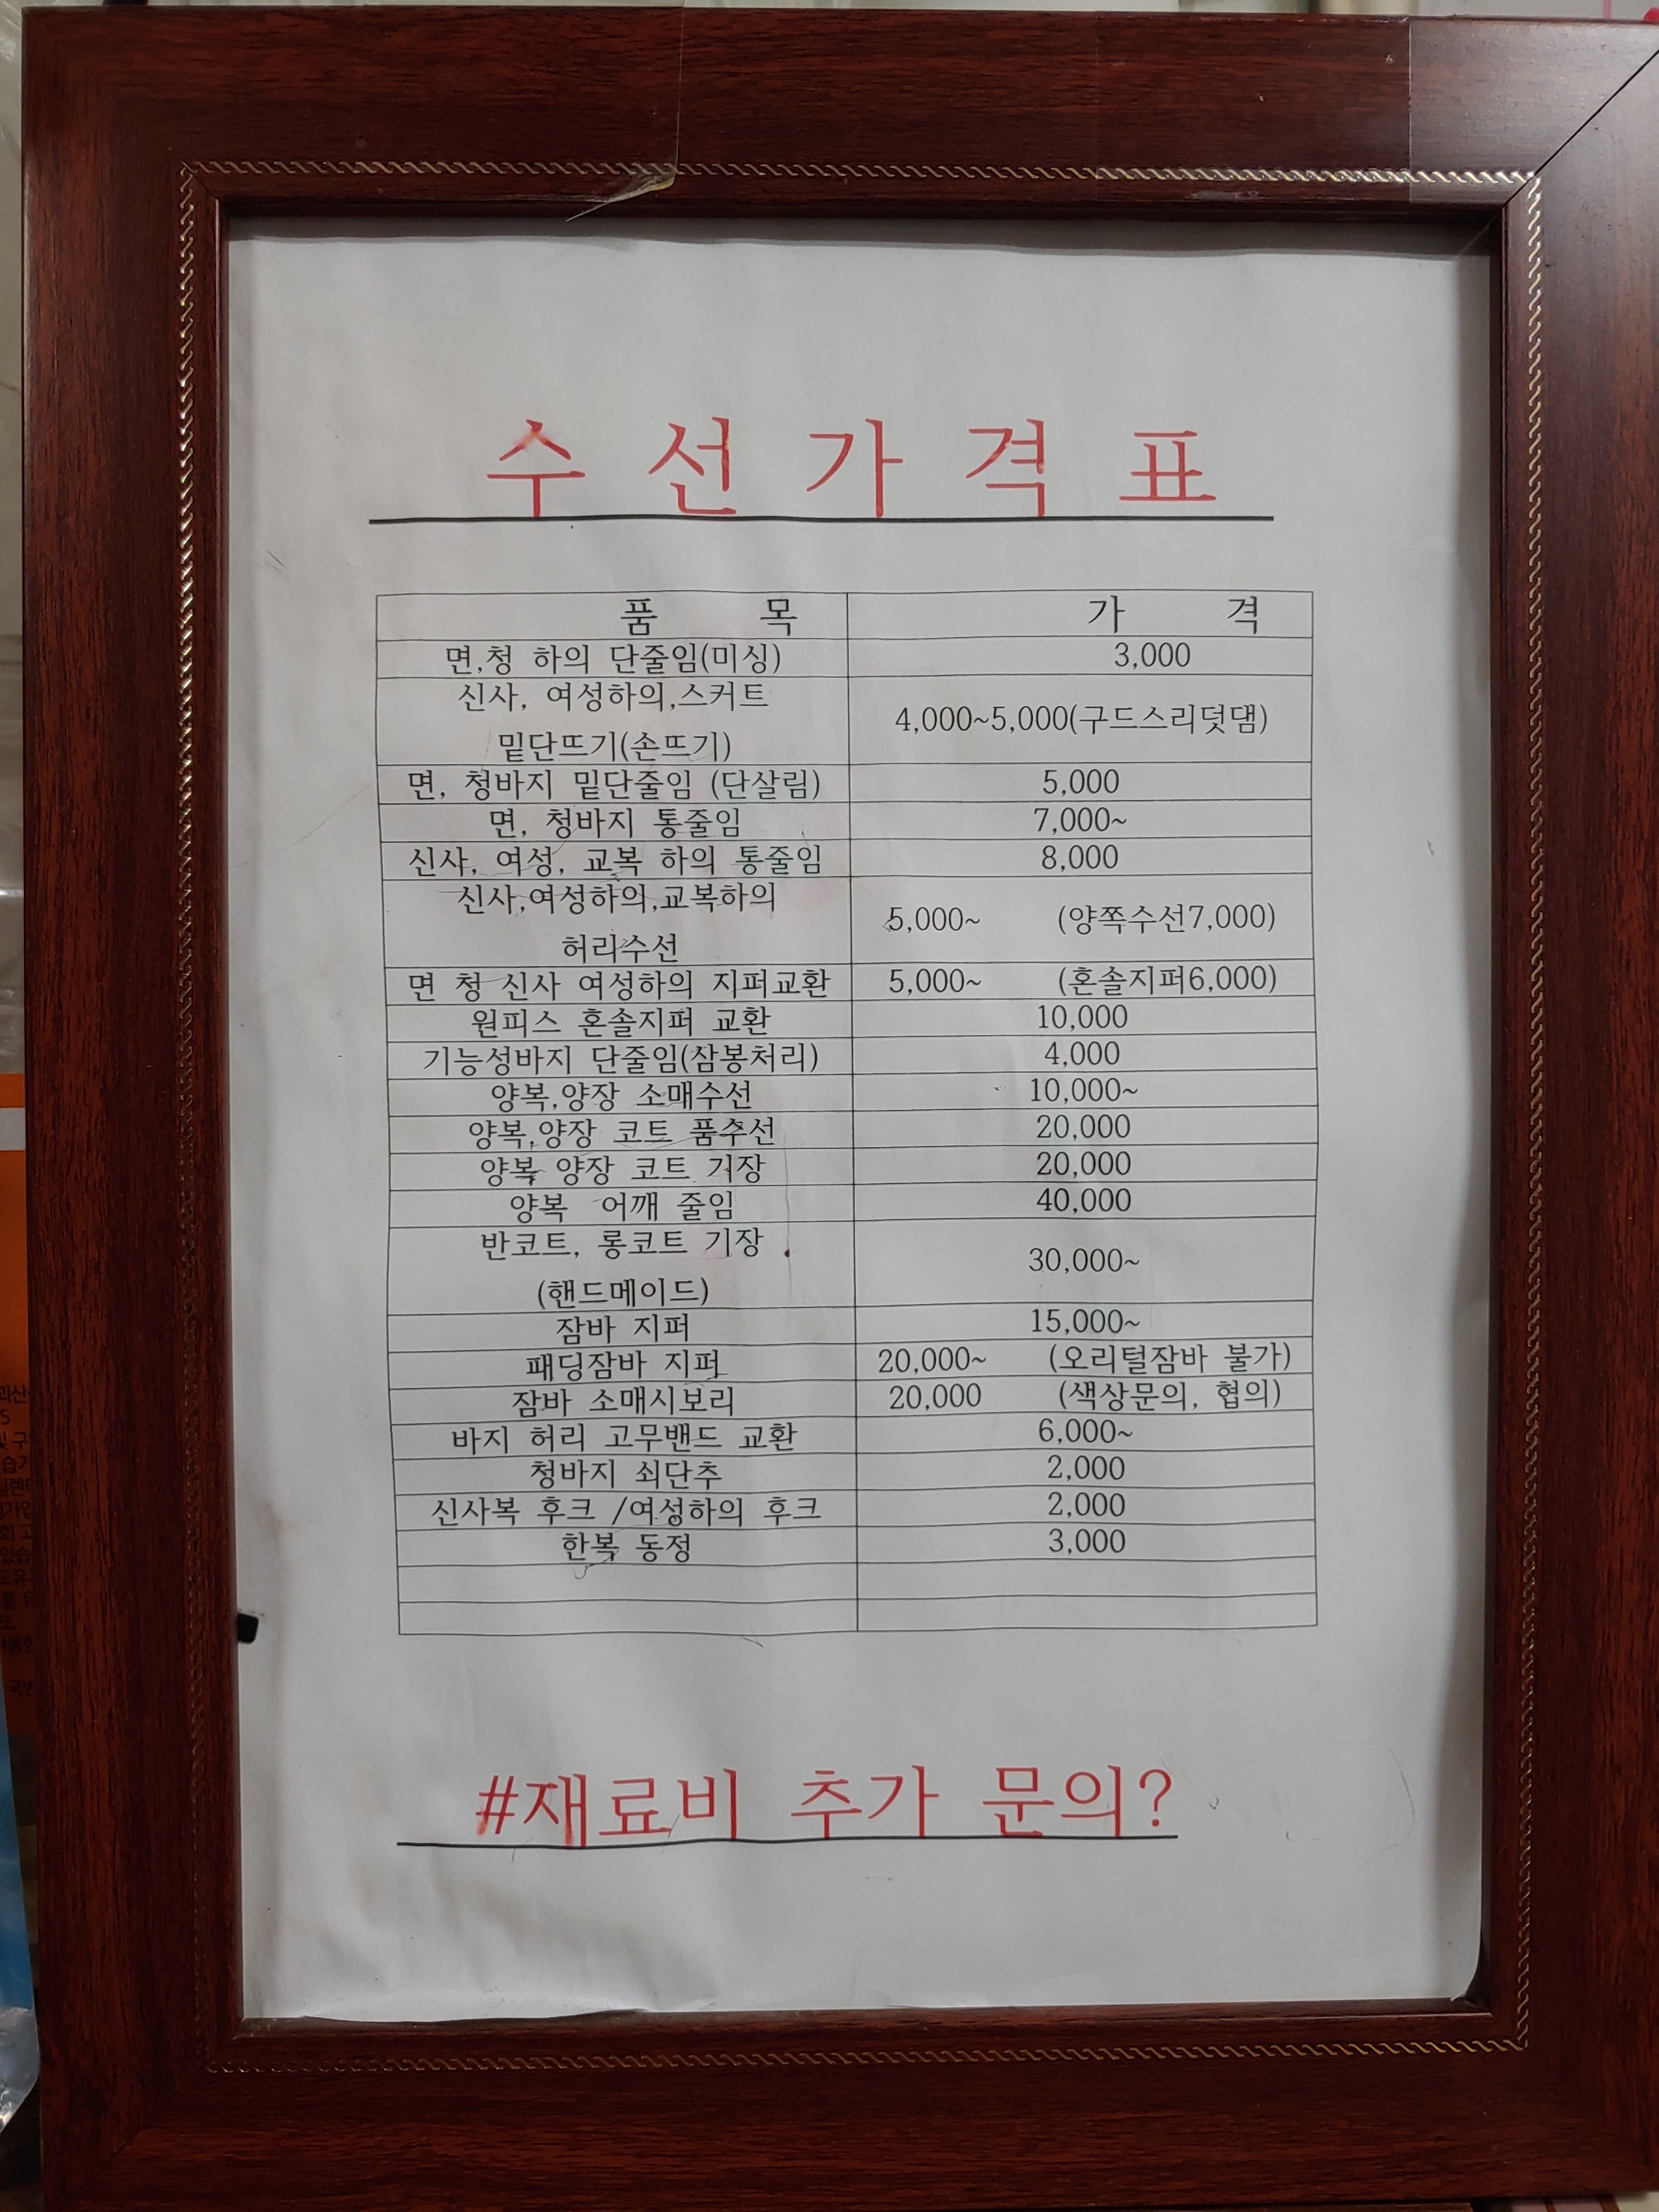 수 선 가 격 표
품 목 가 격
면,청 하의 단줄임(미싱) 3,000
신사, 여성하의,스커트
밑단뜨기(손뜨기) 4,000~5,000(구드스리덧댐)
면, 청바지 밑단줄임 (단살림) 5,000
면, 청바지 통줄임 7,000~
신사, 여성, 교복 하의 통줄임 8,000
신사,여성하의,교복하의
허리수선 5,000~ (양쪽수선7,000)
면 청 신사 여성하의 지퍼교환 5,000~ (혼솔지퍼6,000)
원피스 혼솔지퍼 교환 10,000
기능성바지 단줄임(삼봉처리) 4,000
양복,양장 소매수선 10,000~
양복,양장 코트 품수선 20,000
양복 양장 코트 기장 20,000
양복 어깨 줄임 40,000
반코트, 롱코트 기장
(핸드메이드) 30,000~
잠바 지퍼 15,000~
패딩잠바 지퍼 20,000~ (오리털잠바 불가)
잠바 소매시보리 20,000 (색상문의, 협의)
바지 허리 고무밴드 교환 6,000~
청바지 쇠단추 2,000
신사복 후크 /여성하의 후크 2,000
한복 동정 3,000
#재료비 추가 문의?